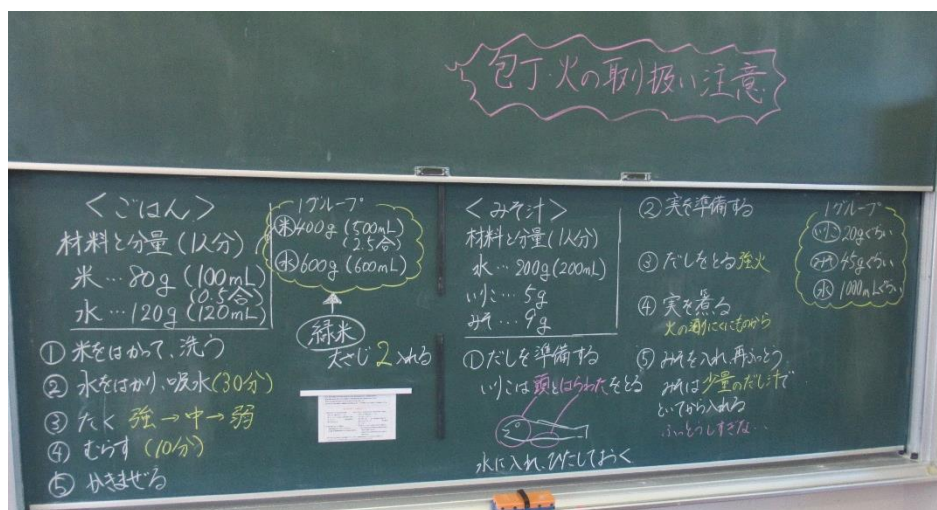 包丁・火の取り扱い注意
<ごはん>
材料と分量(1人分)
米…80g(100mL)
(0.5合)
水…120g(120mL)
1グループ
米400g(500mL)
(2.5合)
水600g(600mL)
緑米
大さじ2入れる
①米をはかって、洗う
②水をはかり、吸水(30分)
③たく 強→中→弱
④むらす(10分)
⑤かきまぜる
<みそ汁>
材料と分量(1人分)
水…200g(200mL)
いりこ…5g
みそ…9g
①だしを準備する
いりこは頭とはらわたをとる
水に入れ、ひたしておく
②実を準備する
③だしをとる強火
④実を煮る
火の通りにくいものから
⑤みそを入れ、再ふっとう
みそは少量のだし汁で
といてから入れる
ふっとうしすぎない..
1グループ
いりこ20gぐらい
みそ45gぐらい
水1000mLぐらい